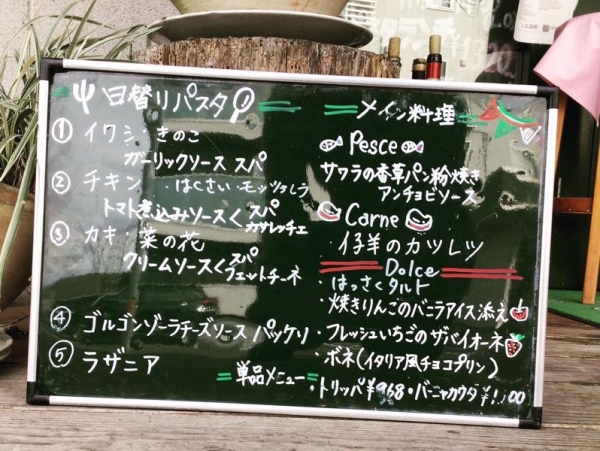 日替りパスタ
① イワシ・きのこ
ガーリックソース スパ
② チキン・はくさい・モッツァレラ
トマト煮込みソース< スパ
カサレッチェ
③ カキ・菜の花
クリームソース< スパ
フェットチーネ
④ ゴルゴンゾーラチーズソース パッケリ
⑤ ラザニア
メイン料理
Pesce
サワラの香草パン粉焼き
アンチョビソース
Carne
・仔羊のカツレツ
Dolce
・はっさくタルト
・焼きりんごのバニラアイス添え
・フレッシュいちごのザバイオーネ
・ボネ(イタリア風チョコプリン)
単品メニュー
・トリッパ ¥968・バーニャカウダ